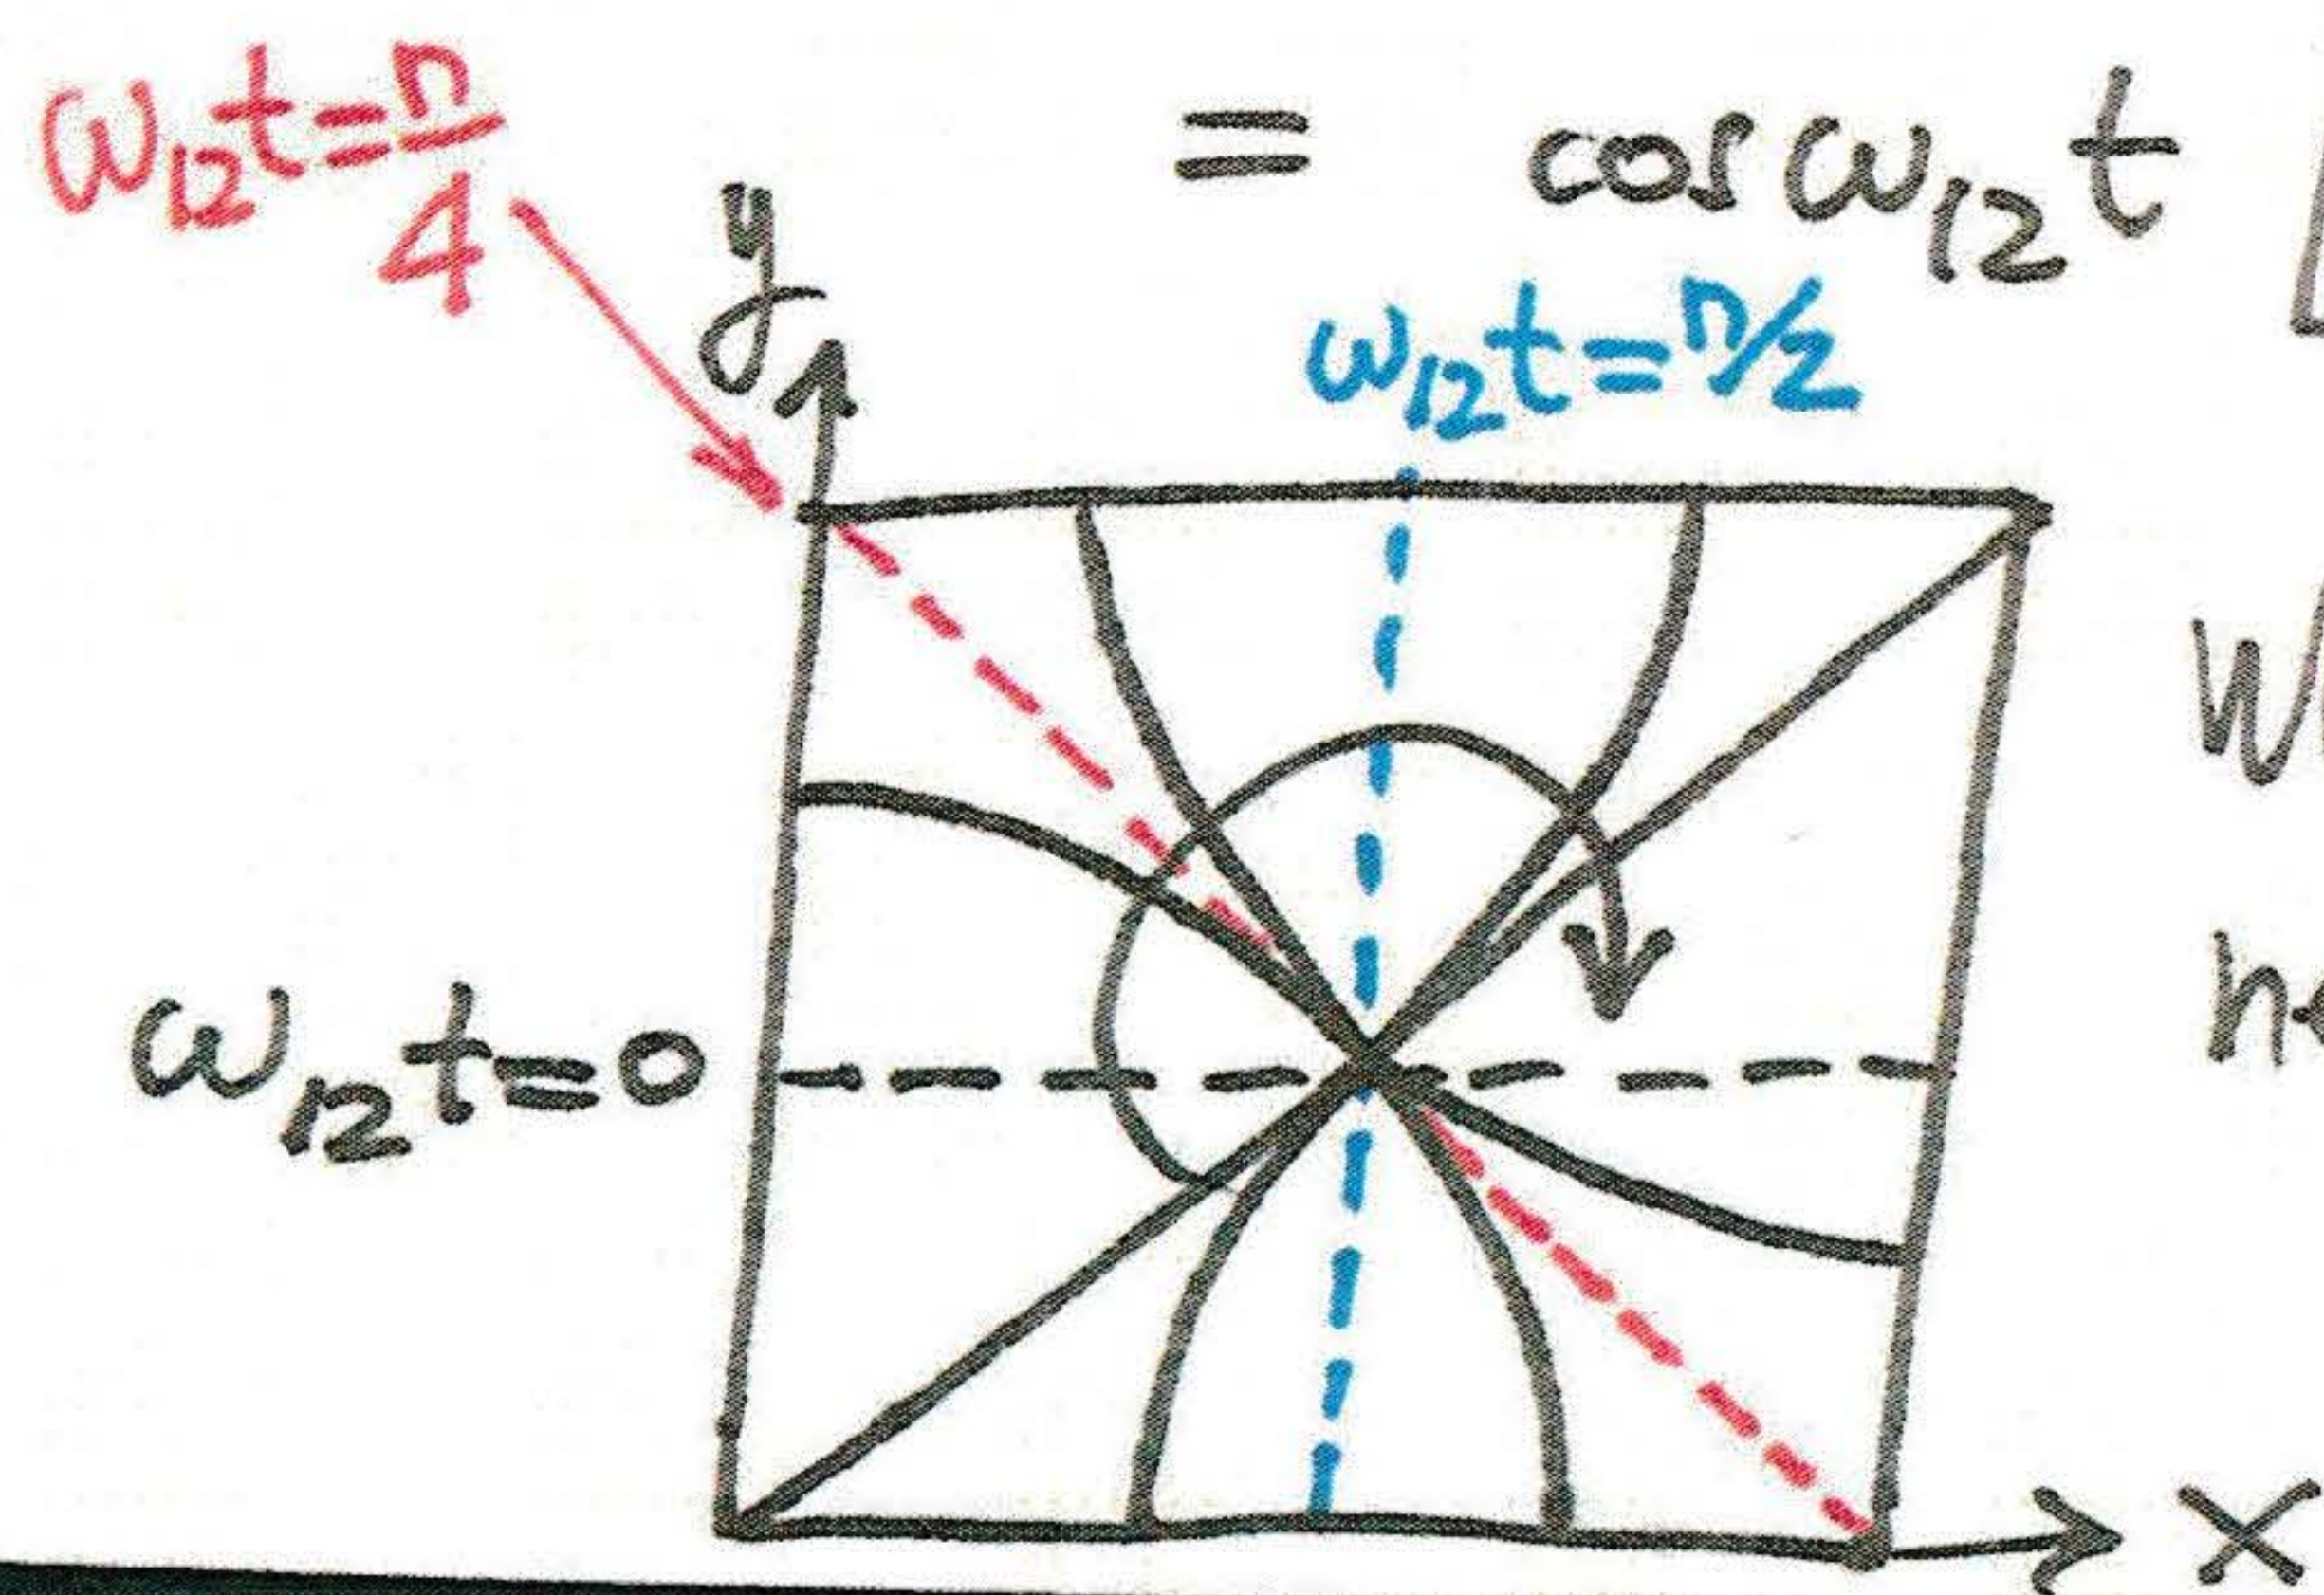 ω₁₂t=π/4
= cos ω₁₂t [
y
ω₁₂t=π/2
ω₁₂t=0
x